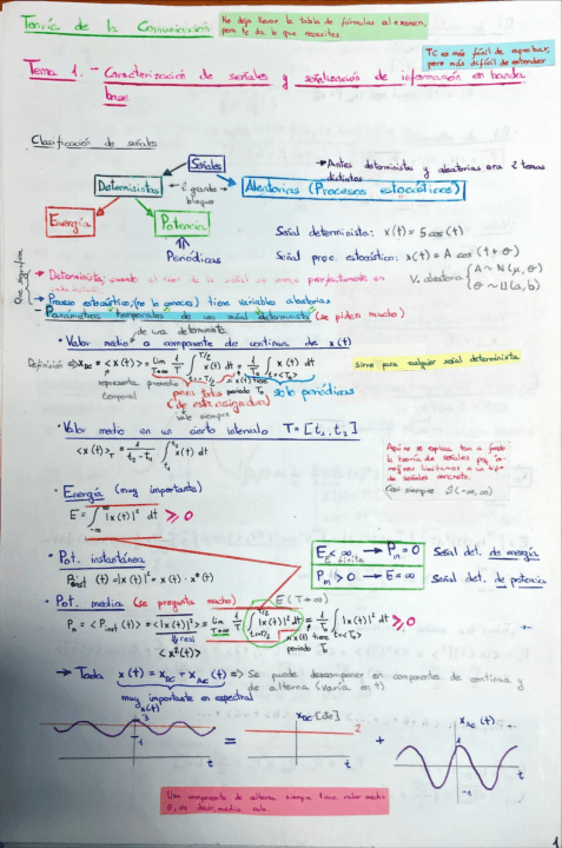 Teoría de la Comunicación
No deja llevar la tabla de fórmulas al examen,
pero te da lo que necesites.
TC es más fácil de aprobar,
pero más difícil de entender
Tema 1.- Caracterización de señales y señalización de información en banda
base
Clasificación de señales
Señales
→ Antes deterministas y aleatorias era 2 temas
distintos
Determinísitas
2 grandes
bloques
Aleatorias (Procesos estocásticos)
Energía
Potencia
Periódicas
Señal determinista: x(t) = 5 cos(t)
Señal proc. estocástico: x(t) = A cos(t+θ)
V. aleatoria { A ~ N(μ, σ)
θ ~ U(a,b)
Que significa
→ Determinista: cuando el valor de la señal se conoce perfectamente en
→ Proceso estocástico, (no lo conoces) tiene variables aleatorias
- Parámetros temporales de una señal determinista (se piden mucho)
de una determinista
· Valor medio o componente de continua de x(t)
Definición ⇒ x_DC = <x(t)> = lim T→∞ 1/T ∫_{t=-T/2}^{T/2} x(t) dt = 1/T₀ ∫_{t=<T₀>} x(t) dt
sirve para cualquier señal determinista
representa promedio
temporal
para todas
(de esta asignatura)
vale siempre
si x(t) tiene
periodo T₀
solo periódicas
· Valor medio en un cierto intervalo T = [t₁, t₂]
<x(t)>_T = 1/(t₂-t₁) ∫_{t₁}^{t₂} x(t) dt
Aquí no se explica tan a fondo
la teoría de señales pq
nos limitamos a un tipo
de señales concreto.
Casi siempre S(-∞,∞)
· Energía (muy importante)
E = ∫_{-∞}^{∞} |x(t)|² dt ≥ 0
· Pot. instantánea
P_inst (t) = |x(t)|² = x(t) · x*(t)
E < ∞ → P_m = 0
E finita
P_m > 0 → E = ∞
Señal det. de energía
Señal det. de potencia
· Pot. media (se pregunta mucho)
E (T→∞)
P_m = <P_inst (t)> = <|x(t)|²> = lim T→∞ 1/T ∫_{t=-T/2}^{T/2} |x(t)|² dt = 1/T₀ ∫_{t=<T₀>} |x(t)|² dt ≥ 0
real
<x²(t)>
si x(t) tiene
periodo T₀
→ Toda x(t) = x_DC + x_AC (t) ⇒ Se puede descomponer en componente de continua y
de alterna (varía en t)
muy importante en espectral
x(t)
3
1
t
=
x_DC [dc]
2
t
+
x_AC (t)
1
-1
t
Una componente de alterna siempre tiene valor medio
0, es decir, media nula.
1